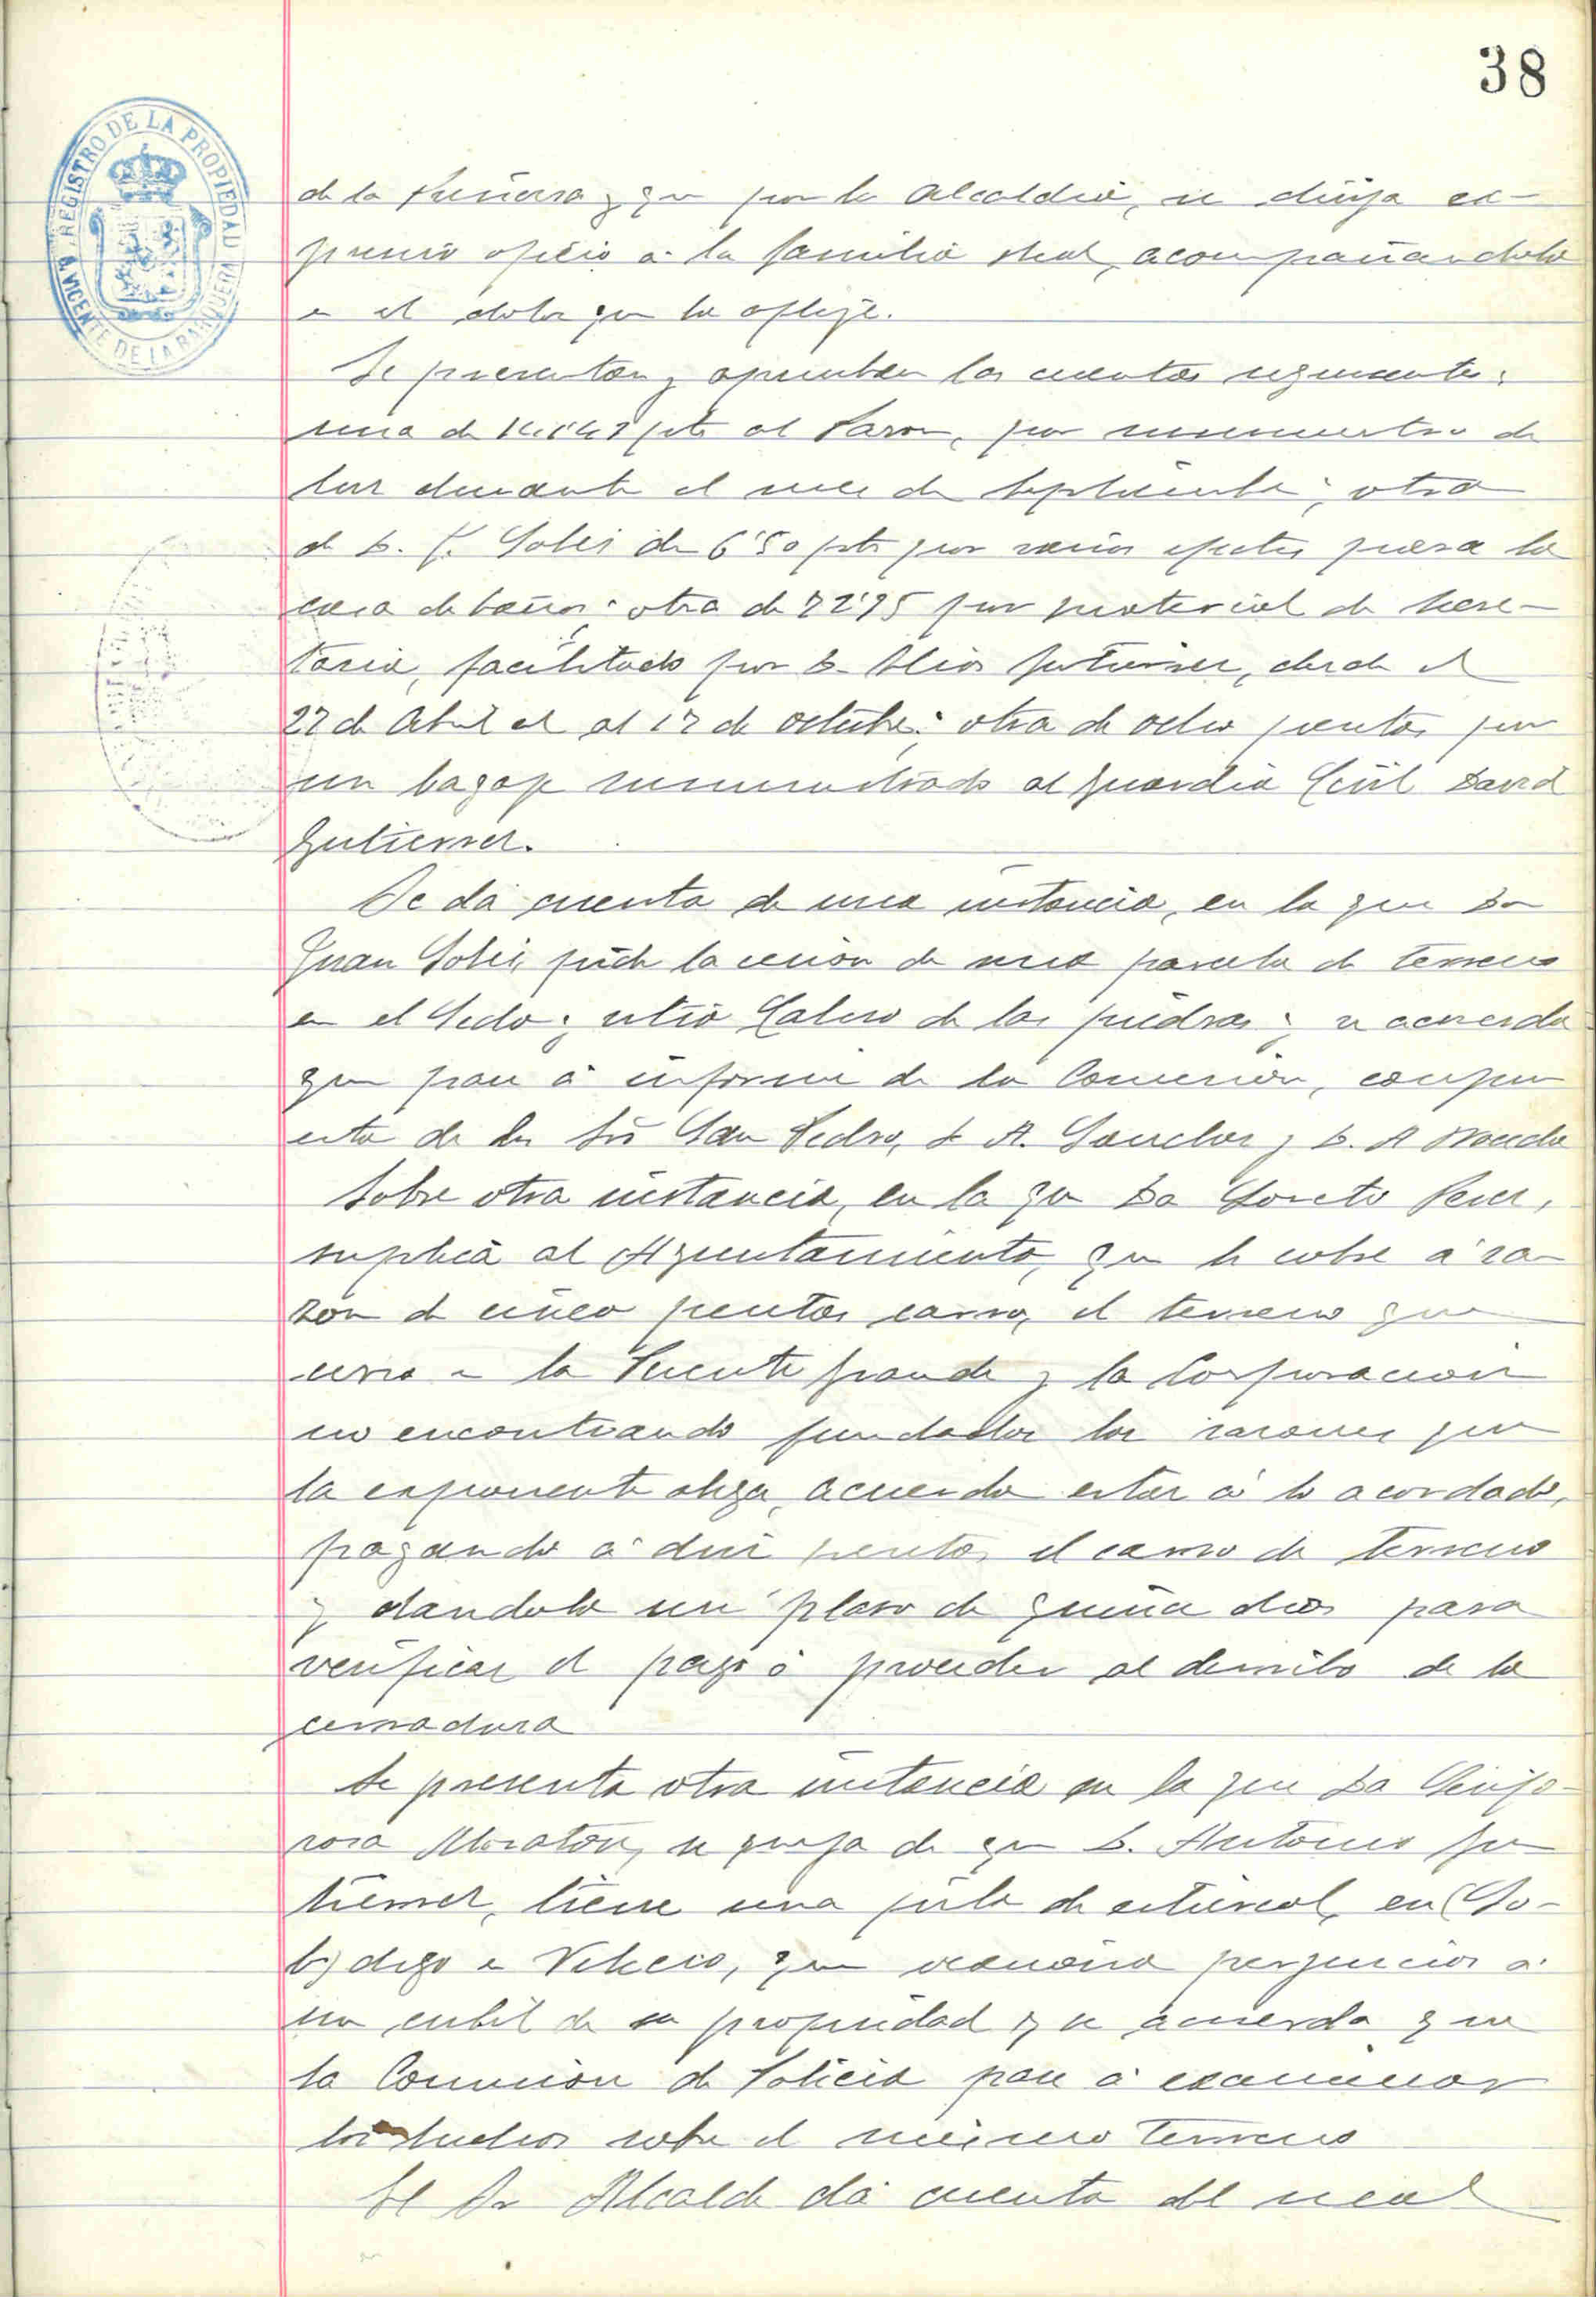 38
REGISTRO DE LA PROPIEDAD
S. VICENTE DE LA BARQUERA
de la y que por la Alcaldia, se dirija ex-
oficio a la familia acompañandola
en el dolor que la aflije.
Se presentan y aprueban las cuentas siguientes:
una de pts al por suministro de
luz durante el mes de Septiembre; otra
de D. F. Sobis de 6'50 pts por varios efectos para la
casa de baños; otra de 72'95 por material de Secre-
taria, facilitado por D. Gutierrez, desde el
27 de Abril al 17 de octubre; otra de ocho pesetas por
un bagaje suministrado al guardia Civil David
Gutierrez.
Se dá cuenta de una instancia, en la que Dn
Juan pide la cesion de una parcela de terreno
en el sitio de las piedras; se acuerda
que pase á informe de la Comision, compu
esta de los Srs San Pedro, D A. Sanchez y D. A
Sobre otra instancia, en la que Da Loreto Perez,
suplica al Ayuntamiento, que le cobre á ra-
zon de cinco pesetas carro, el terreno que
cerró en la Fuente grande y la Corporacion
no encontrando fundadas las razones que
la exponente alega, acuerda estar á lo acordado,
pagando á diez pesetas el carro de terreno
y dandola un plazo de quince dias para
verificar el pago ó proceder al derribo de la
cerradura
Se presenta otra instancia en la que Da Sinfo-
rosa Moraton, se queja de que D. Antonio Gu
tierrez, tiene una pila de estiercol, en
digo en que ocasiona perjuicios á
un cubil de su propiedad y se acuerda que
la Comision de Policia pase á examinar
los hechos sobre el mismo terreno
El Sr Alcalde dá cuenta del